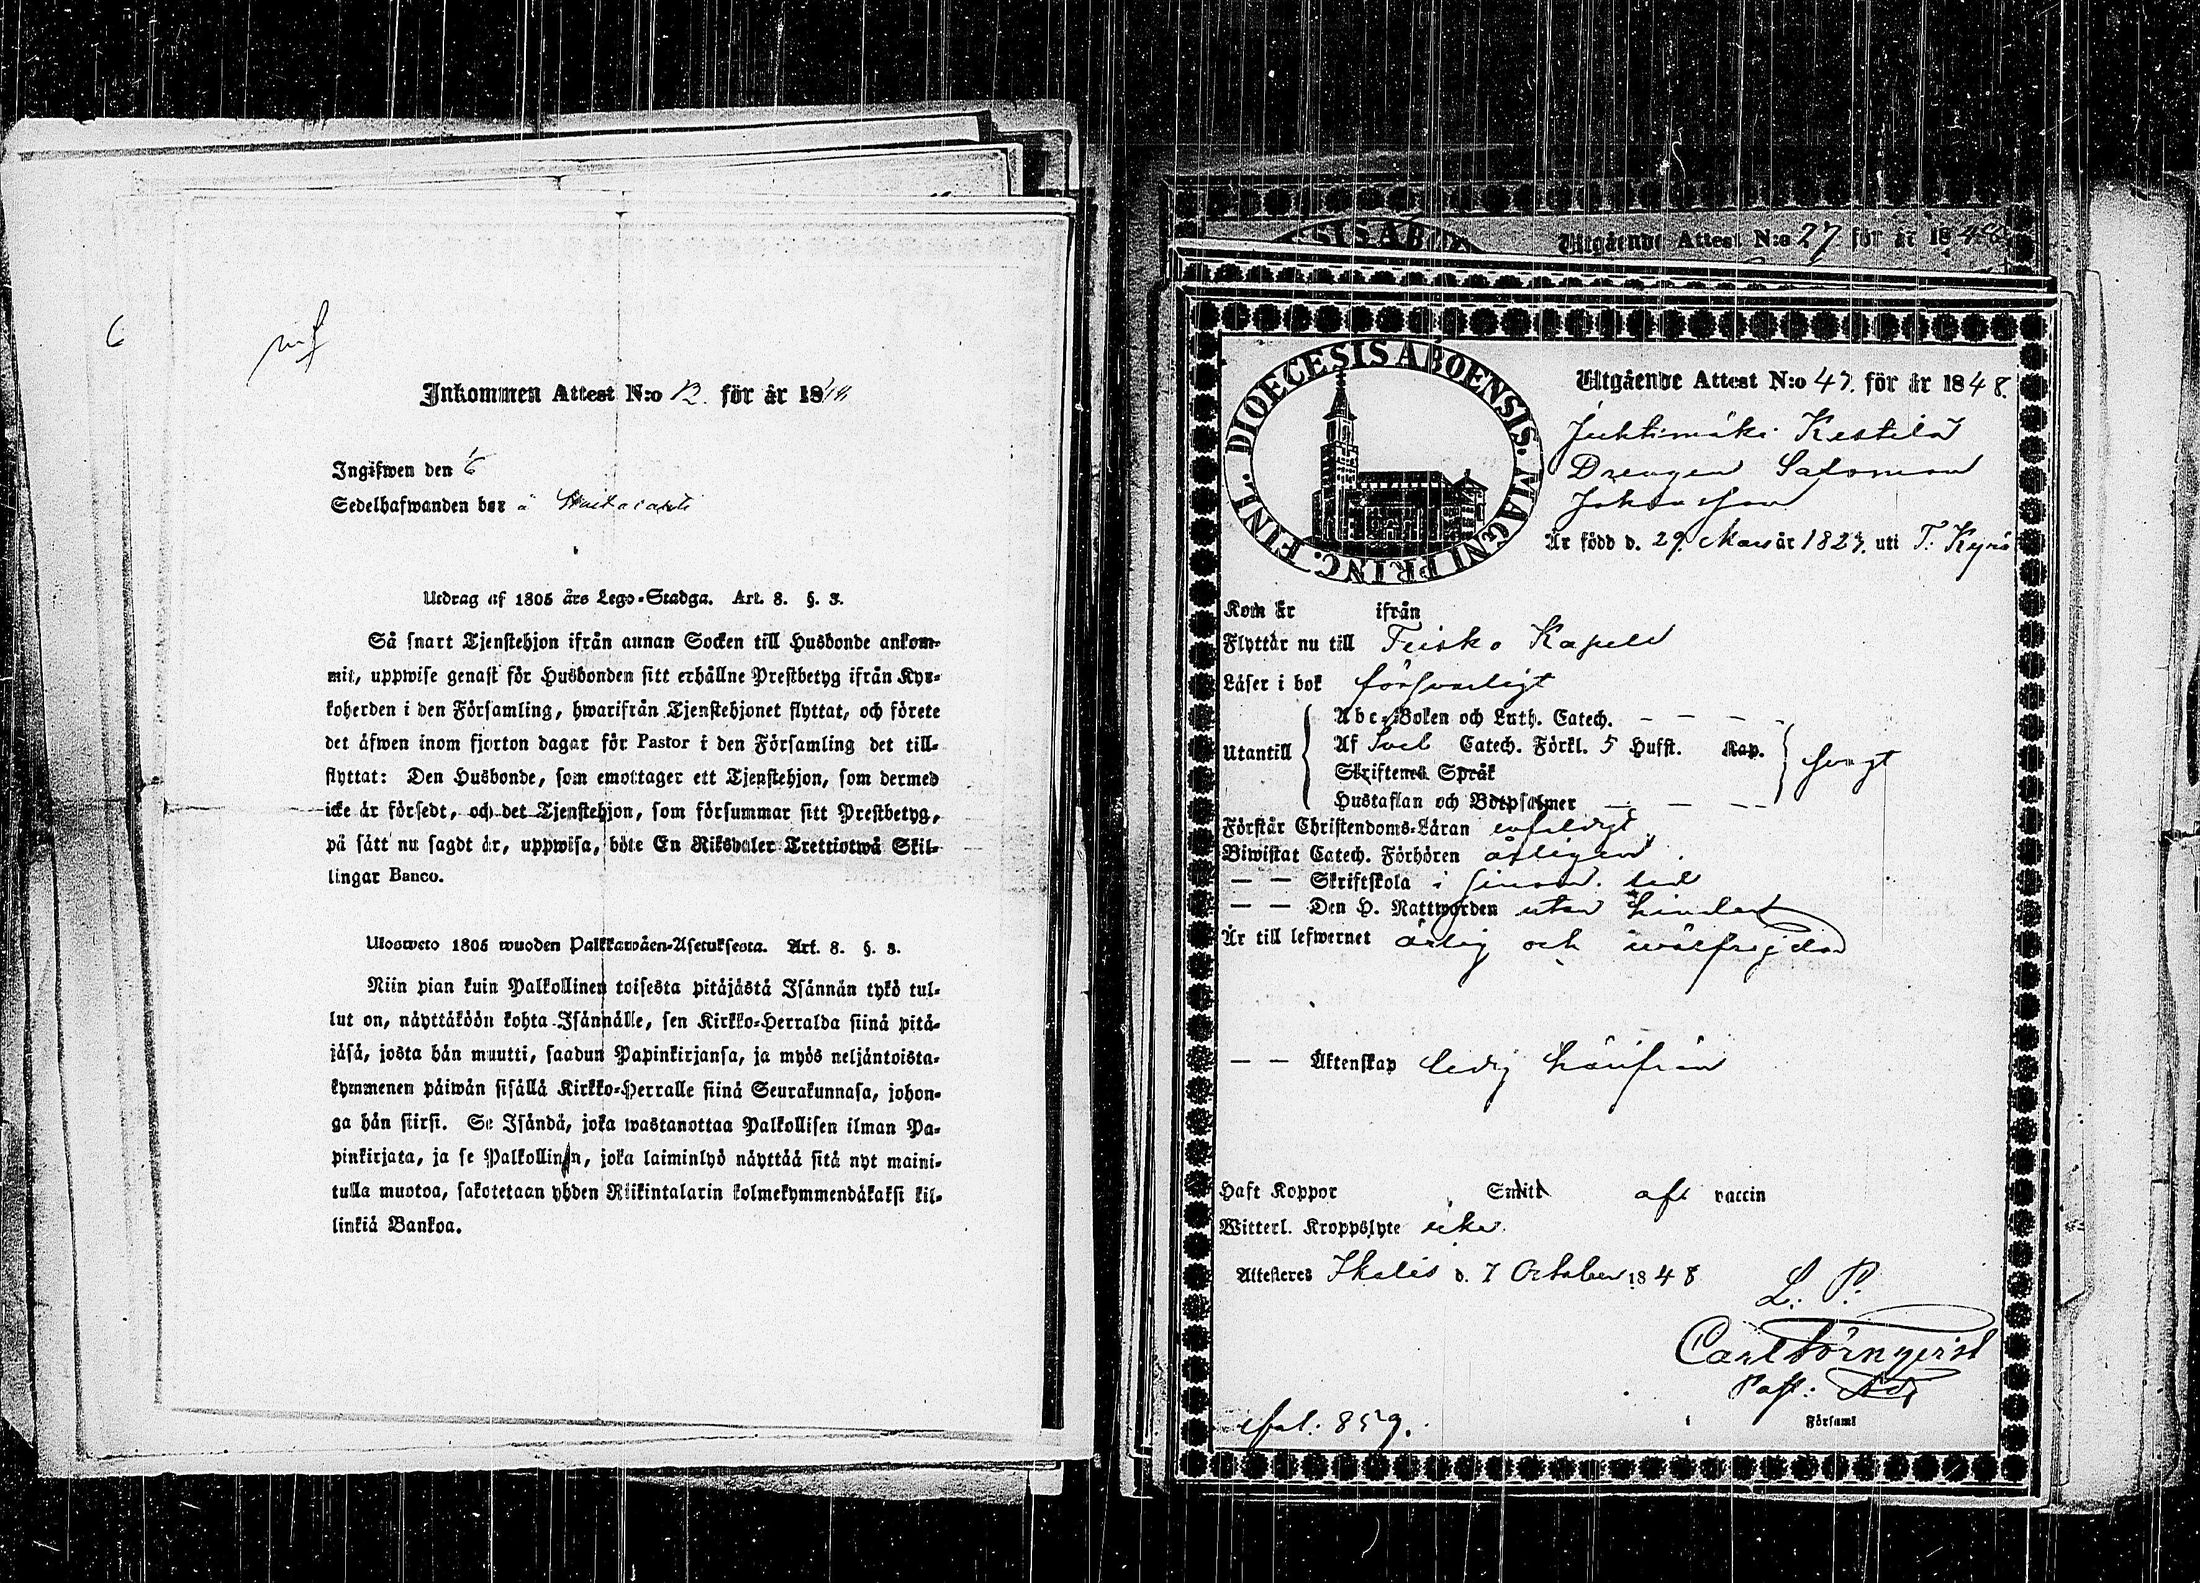 6
Inkommen Attest N:o 12. för år 18
Ingifwen den
Sedelhafwanden bor å
Utdrag af 1805 års Lego-Stadga. Art. 8. §. 3.
Så snart Tjenstehjon ifrån annan Socken till Husbonde ankom-
mit, uppwise genast för Husbonden sitt erhållne Prestbetyg ifrån Kyr-
koherden i den Församling, hwarifrån Tjenstehjonet flyttat, och förete
det äfwen inom fjorton dagar för Pastor i den Församling det till-
flyttat: Den Husbonde, som emottager ett Tjenstehjon, som dermed
icke är försedt, och det Tjenstehjon, som försummar sitt Prestbetyg,
på sätt nu sagdt är, uppwisa, böte En Riksdaler Trettiotwå Skil-
lingar Banco.
Ulosweto 1805 wuoden Palkkawäen-Asetuksesta. Art. 8. §. 3.
Niin pian kuin Palkollinen toisesta pitäjästä Isännän tykö tul-
lut on, näyttäköön kohta Isännälle, sen Kirkko-Herralda siinä pitä-
jäsä, josta hän muutti, saadun Papinkirjansa, ja myös neljäntoista-
kymmenen päiwän sisällä Kirkko-Herralle siinä Seurakunnasa, johon-
ga hän siirsi. Se Isändä, joka wastanottaa Palkollisen ilman Pa-
pinkirjata, ja se Palkollinen, joka laiminlyö näyttää sitä nyt maini-
tulla muotoa, sakotetaan yhden Riikintalarin kolmekymmendäkaksi kil-
linkiä Bankoa.
Utgående Attest N:o 27 för år 184
DIOECESIS ABOENSIS. MAGNI PRINC. FINL.
Utgående Attest N:o 47. för år 1848.
Juhtimäki Kestilä
Drengen Salomon
Johansson
Är född d. 29. Mars år 1827. uti T: Kyrö
Kom år ifrån
Flyttar nu till Teisko Kapell
Läser i bok försvarligt
Utantill
Abc-Boken och Luth. Catech. — — — —
Af Sveb Catech. Förkl. 5 Hufst. Kap.
Skriftenes Språk
Hustaflan och Botpsalmer — — — —
svagt
Förstår Christendoms-Läran enfaldigt
Biwistat Catech. Förhören årligen.
— — Skriftskola i sinom tid
— — Den H. Nattwarden utan hinder
Är till lefwernet ärlig och wälfrejdad
— — Äktenskap ledig härifrån
Haft Koppor Smitt aft vaccin
Witterl. Kroppslyte icke.
Attesteres Ikalis d. 7 October 1848
L. P.
Carl Törnqvist
Past: Adj
Församl
fol. 859.